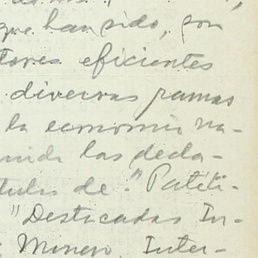 que han sido, por
tores eficientes
diversas ramas
la economía na-
las decla-
de "Patiti-
"Destacadas In-
Minero, Inter-